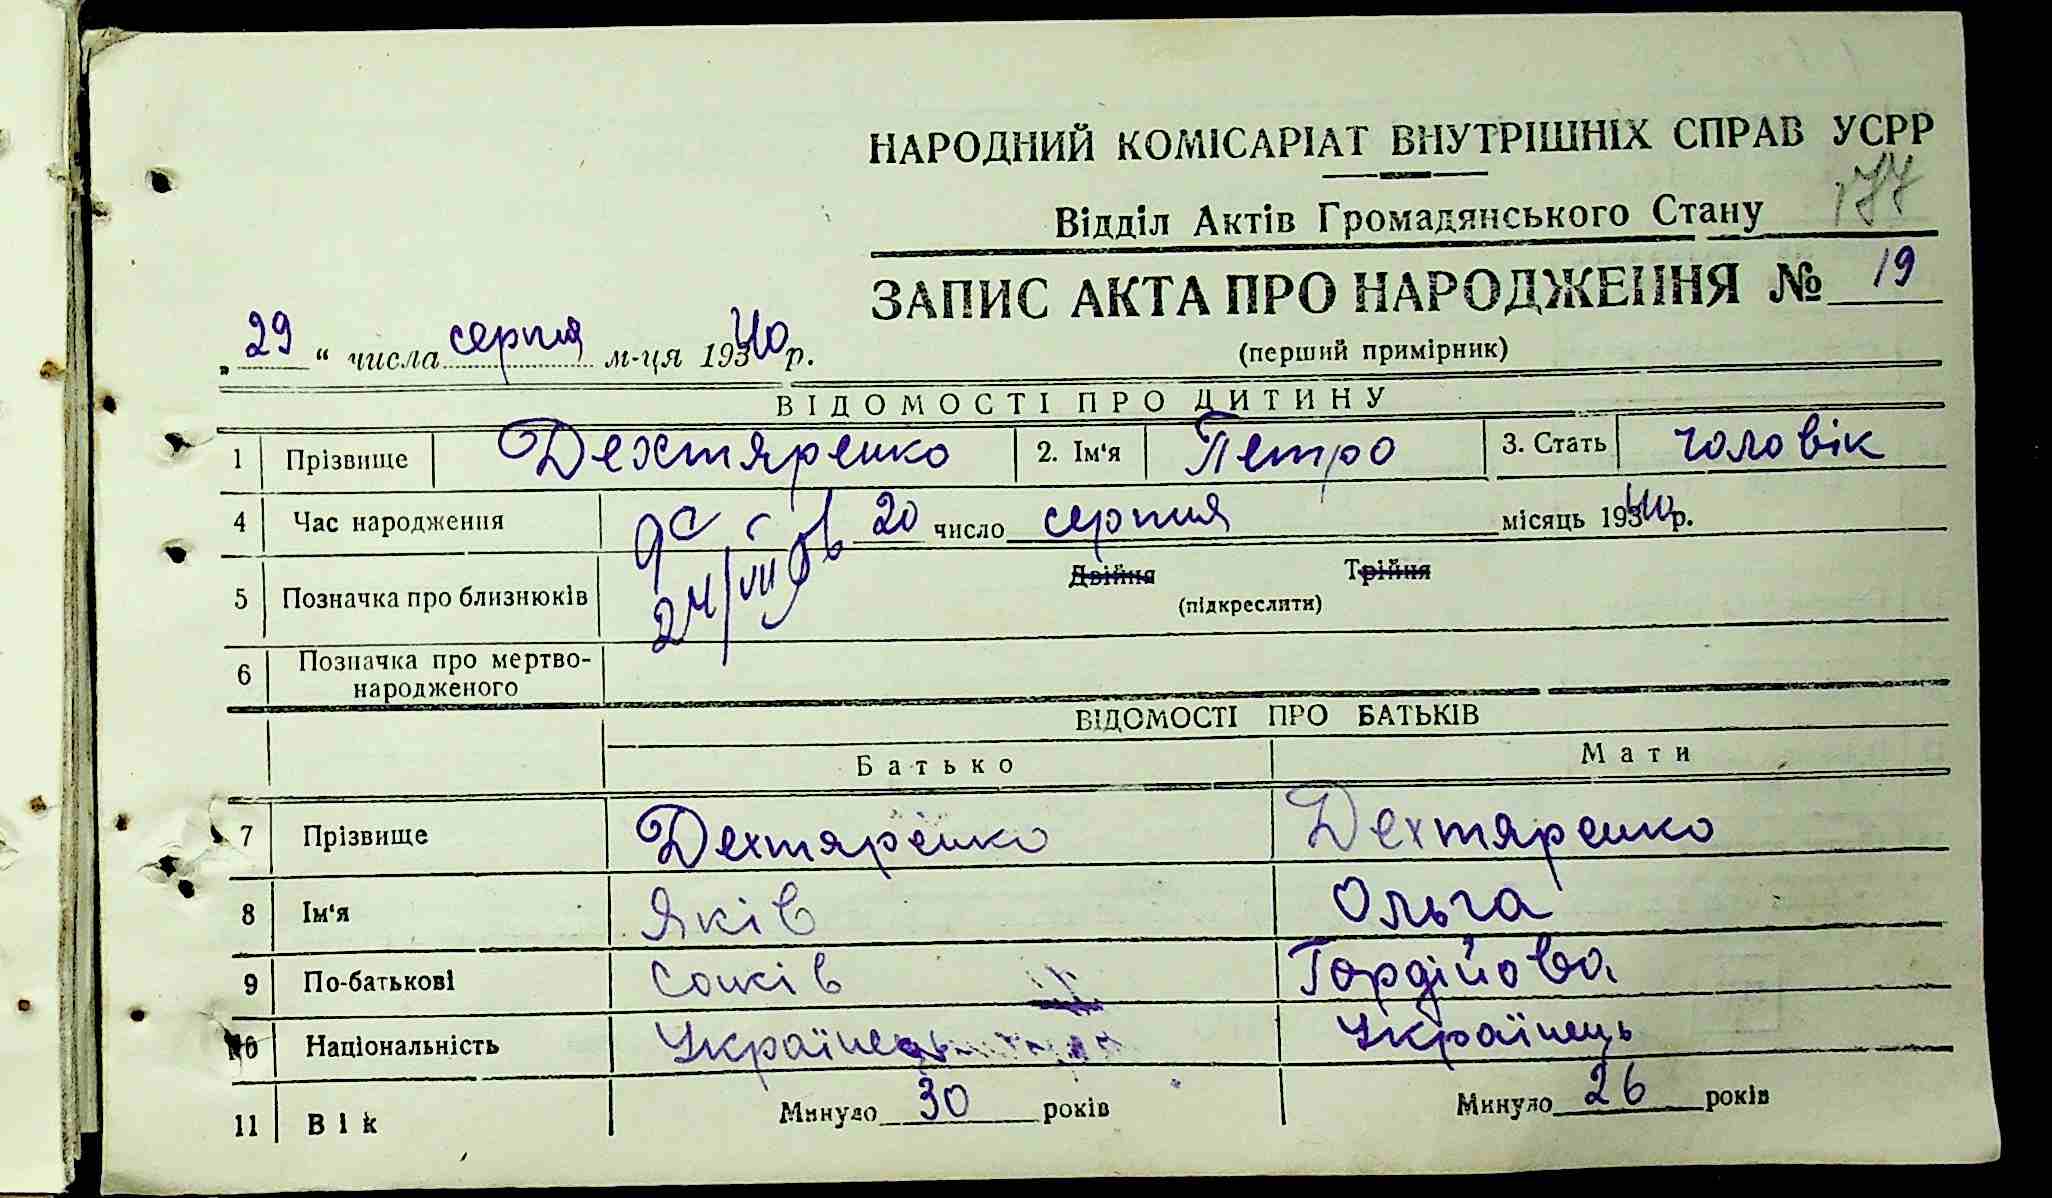 НАРОДНИЙ КОМІСАРІАТ ВНУТРІШНІХ СПРАВ УСРР
177
Відділ Актів Громадянського Стану
ЗАПИС АКТА ПРО НАРОДЖЕННЯ № 19
(перший примірник)
„ 29 “ числа серпня м-ця 193 40 р.
ВІДОМОСТІ ПРО ДИТИНУ
1 Прізвище Дехтяренко 2. Ім'я Петро 3. Стать чоловік
4 Час народження 20 число серпня місяць 193 40 р.
5 Позначка про близнюків Двійня Трійня
(підкреслити)
24/VIII
6 Позначка про мертво-
народженого
ВІДОМОСТІ ПРО БАТЬКІВ
Батько Мати
7 Прізвище Дехтяренко Дехтяренко
8 Ім'я Яків Ольга
9 По-батькові Гордійова
10 Національність Українець Українець
11 Вік Минуло 30 років Минуло 26 років